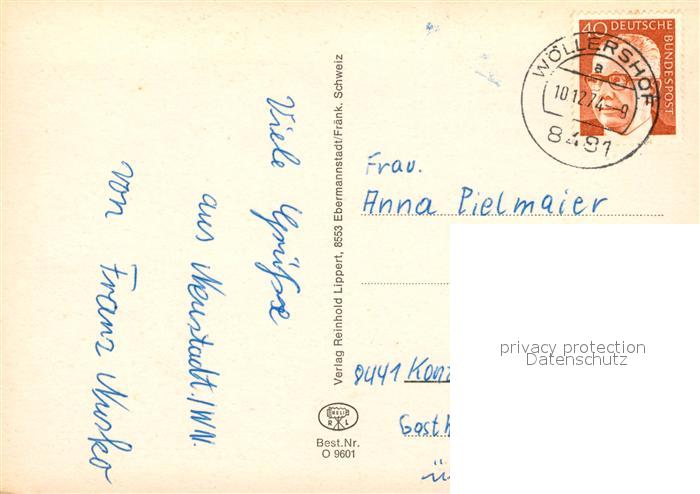 40 DEUTSCHE
BUNDESPOST
WÖLLERSHOF
a
10.12.74-9
8481
Viele Grüße
aus Neustadt/WN.
von Franz Musko
Verlag Reinhold Lippert, 8553 Ebermannstadt/Fränk. Schweiz
HELI
R L
Best.Nr.
O 9601
Frau.
Anna Pielmaier
8441 Konz
Gasth
ü
privacy protection
Datenschutz